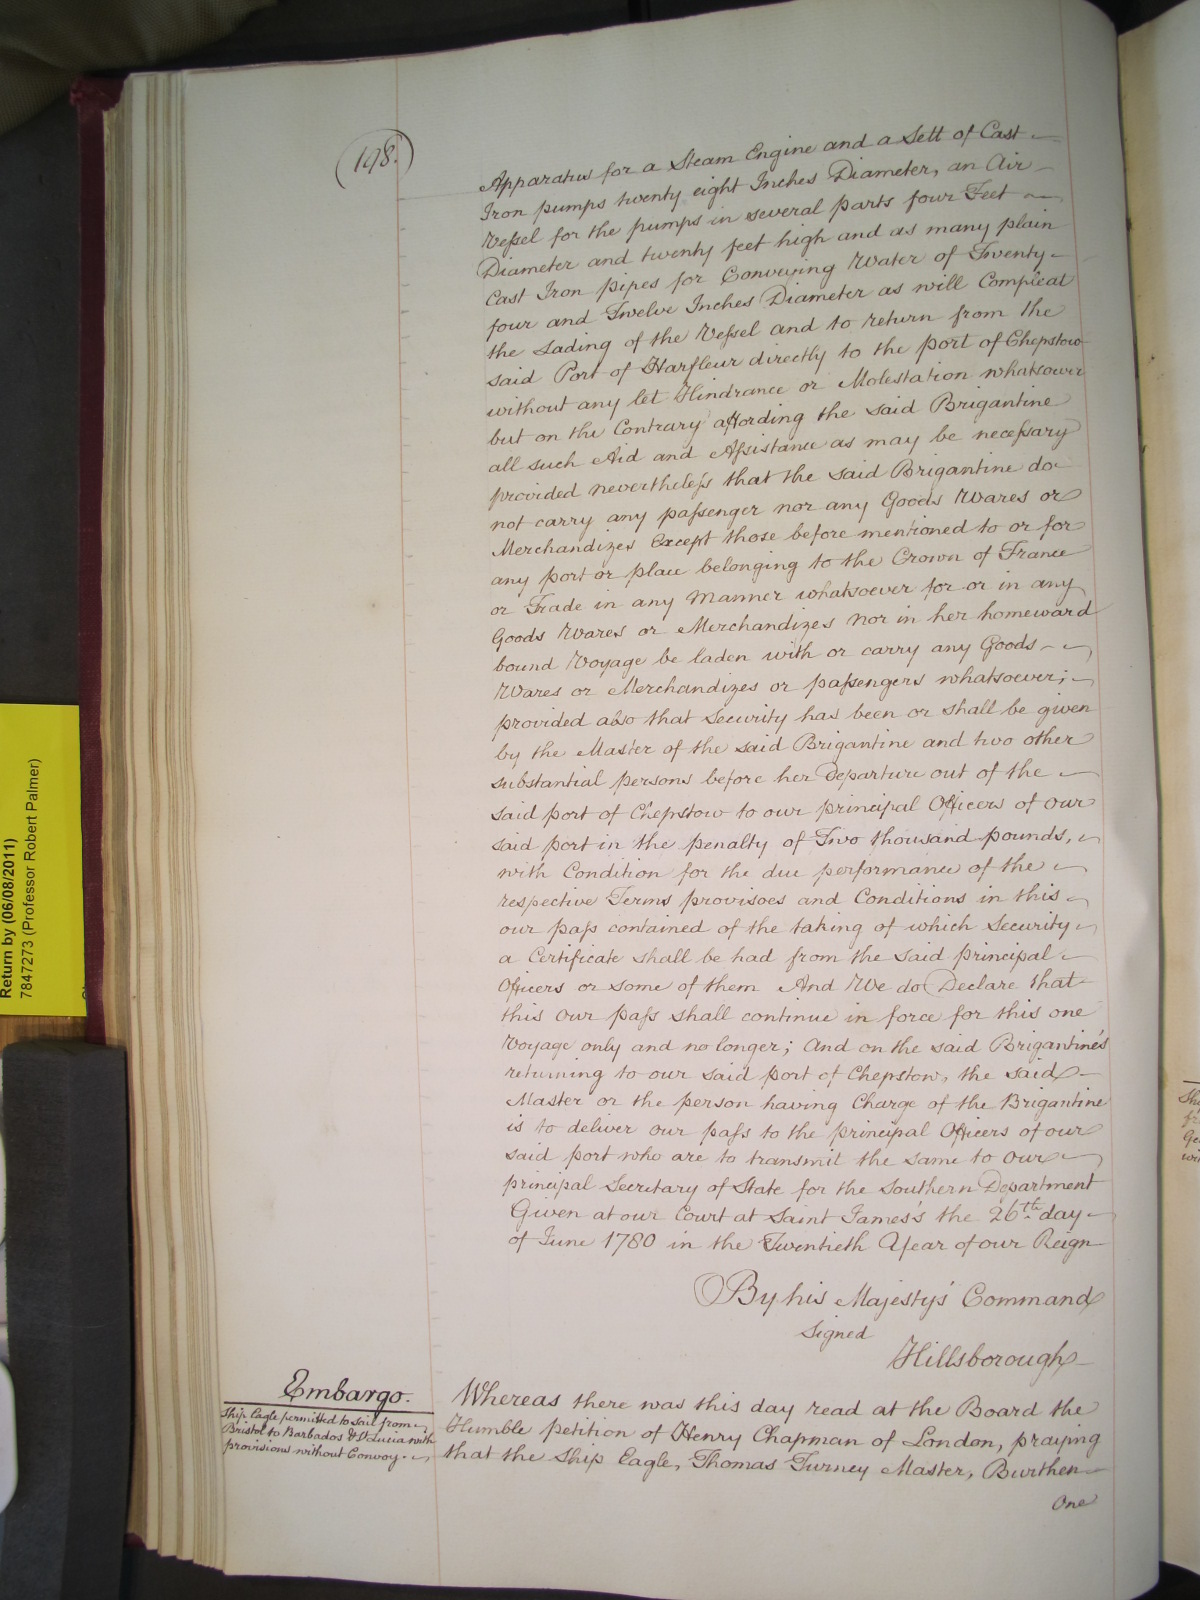 198.
Apparatus for a Steam Engine and a Sett of Cast
Iron pumps twenty eight Inches Diameter, an Air
Vessel for the pumps in several parts four Feet
Diameter and twenty feet high and as many plain
Cast Iron pipes for Conveying Water of Twenty
four and Twelve Inches Diameter as will Compleat
the Lading of the Vessel and to return from the
said Port of Harfleur directly to the port of Chepstow
without any let Hindrance or Molestation whatsoever
but on the Contrary affording the said Brigantine
all such Aid and Assistance as may be necessary
provided nevertheless that the said Brigantine do
not carry any passenger nor any Goods Wares or
Merchandizes Except those before mentioned to or for
any port or place belonging to the Crown of France
or Trade in any Manner whatsoever for or in any
Goods Wares or Merchandizes nor in her homeward
bound Voyage be laden with or carry any Goods
Wares or Merchandizes or passengers whatsoever;
provided also that Security has been or shall be given
by the Master of the said Brigantine and two other
substantial persons before her Departure out of the
said port of Chepstow to our principal Officers of our
said port in the penalty of Two thousand pounds,
with Condition for the due performance of the
respective Terms provisoes and Conditions in this
our pass contained of the taking of which Security
a Certificate shall be had from the said principal
Officers or some of them And We do Declare that
this our pass shall continue in force for this one
Voyage only and no longer; And on the said Brigantine's
returning to our said port of Chepstow, the said
Master or the person having Charge of the Brigantine
is to deliver our pass to the principal Officers of our
said port who are to transmit the same to our
principal Secretary of State for the Southern Department
Given at our Court at Saint James's the 26th day
of June 1780 in the Twentieth Year of our Reign
By his Majesty's Command
Signed
Hillsborough
Embargo.
Ship Eagle permitted to sail from
Bristol to Barbados & St Lucia with
provisions without Convoy.
Whereas there was this day read at the Board the
Humble petition of Henry Chapman of London, praying
that the Ship Eagle, Thomas Turney Master, Burthen
One
Return by (06/08/2011)
7847273 (Professor Robert Palmer)